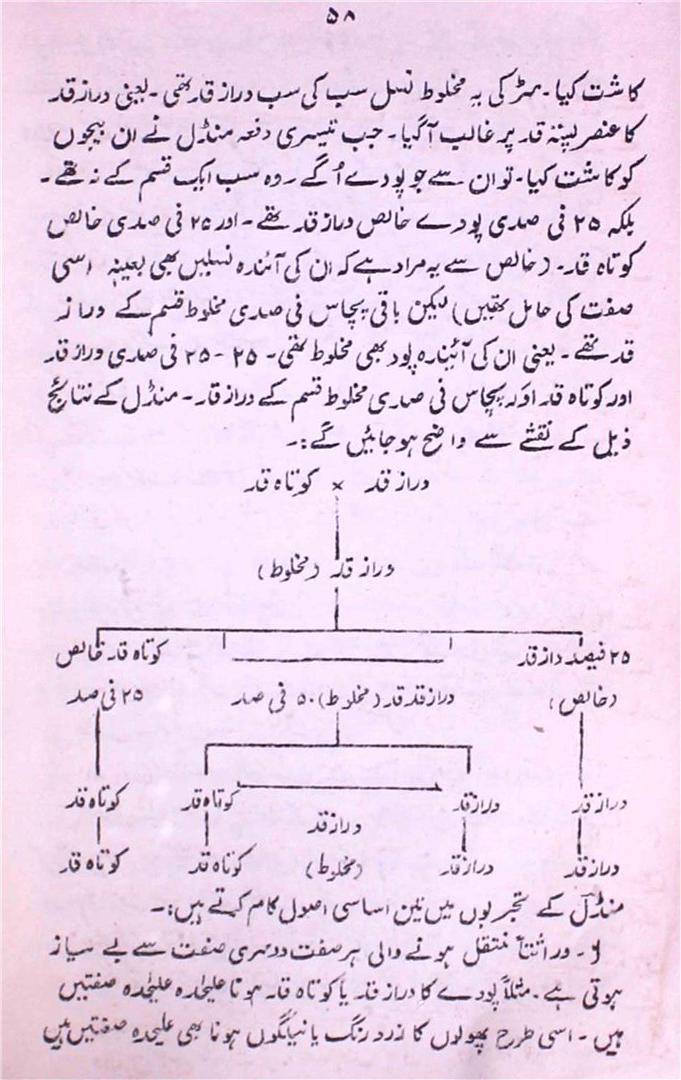 ۵۸
کاشت کیا۔ مٹر کی یہ مخلوط نسل سب کی سب دراز قد تھی۔ یعنی دراز قد
کا عنصر پستہ قد پر غالب آگیا۔ جب تیسری دفعہ منڈل نے ان بیجوں
کو کاشت کیا۔ تو ان سے جو پودے اُگے۔ وہ سب ایک قسم کے نہ تھے۔
بلکہ ۲۵ فی صدی پودے خالص دراز قد تھے۔ اور ۲۵ فی صدی خالص
کوتاہ قد۔ (خالص سے یہ مراد ہے کہ ان کی آئندہ نسلیں بھی بعینہٖ اسی
صفت کی حامل تھیں) لیکن باقی پچاس فی صدی مخلوط قسم کے دراز
قد تھے۔ یعنی ان کی آئندہ پود بھی مخلوط تھی۔ ۲۵ - ۲۵ فی صدی دراز قد
اور کوتاہ قد اور پچاس فی صدی مخلوط قسم کے دراز قد۔ منڈل کے نتائج
ذیل کے نقشے سے واضح ہو جائیں گے:۔
دراز قد × کوتاہ قد
دراز قد (مخلوط)
۲۵ فیصد دراز قد کوتاہ قد خالص
(خالص) دراز قد قد (مخلوط) ۵۰ فی صد ۲۵ فی صد
دراز قد دراز قد کوتاہ قد کوتاہ قد
دراز قد
دراز قد دراز قد (مخلوط) کوتاہ قد کوتاہ قد
منڈل کے تجربوں میں تین اساسی اصول کام کرتے ہیں:۔
۱۔ وراثتاً منتقل ہونے والی ہر صفت دوسری صفت سے بے نیاز
ہوتی ہے۔ مثلاً پودے کا دراز قد یا کوتاہ قد ہونا علیحٰدہ علیحٰدہ صفتیں
ہیں۔ اسی طرح پھولوں کا زرد رنگ یا نیلگوں ہونا بھی علیحدہ صفتیں ہیں